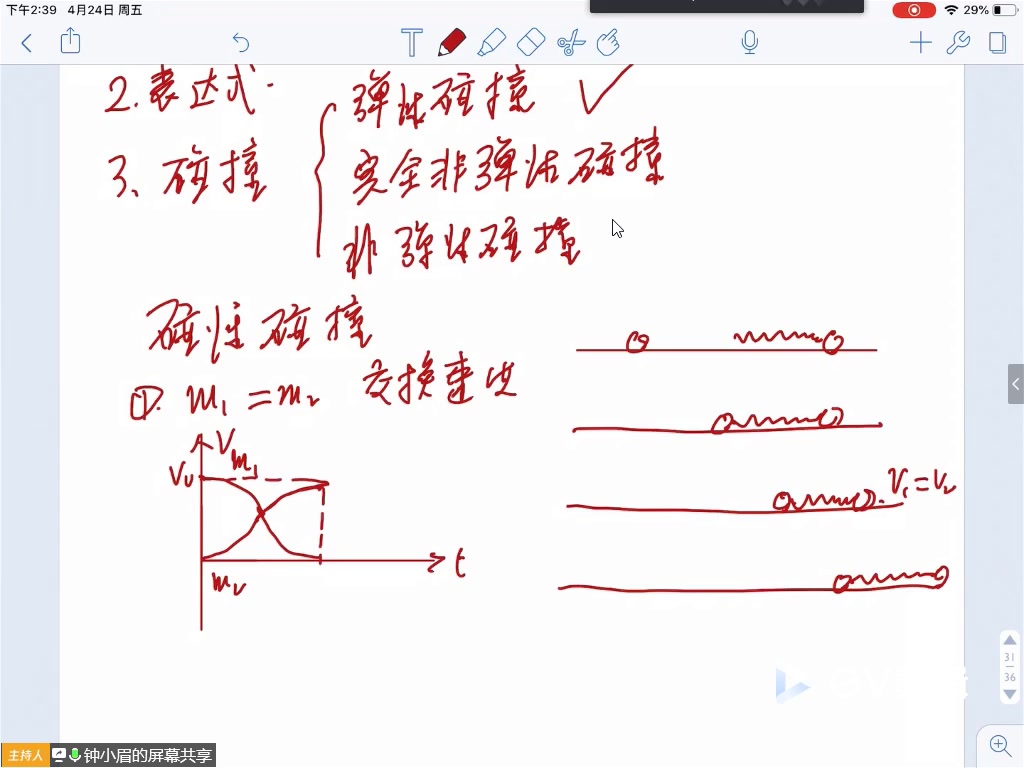 下午2:39 4月24日 周五
29%
2.表达式.
弹性碰撞 ✓
3、碰撞
完全非弹性碰撞
非弹性碰撞
碰性碰撞
①. m₁=m₂ 交换速度
V
m₁
V₀
t
m₂
V₁=V₂
31
36
主持人 钟小眉的屏幕共享